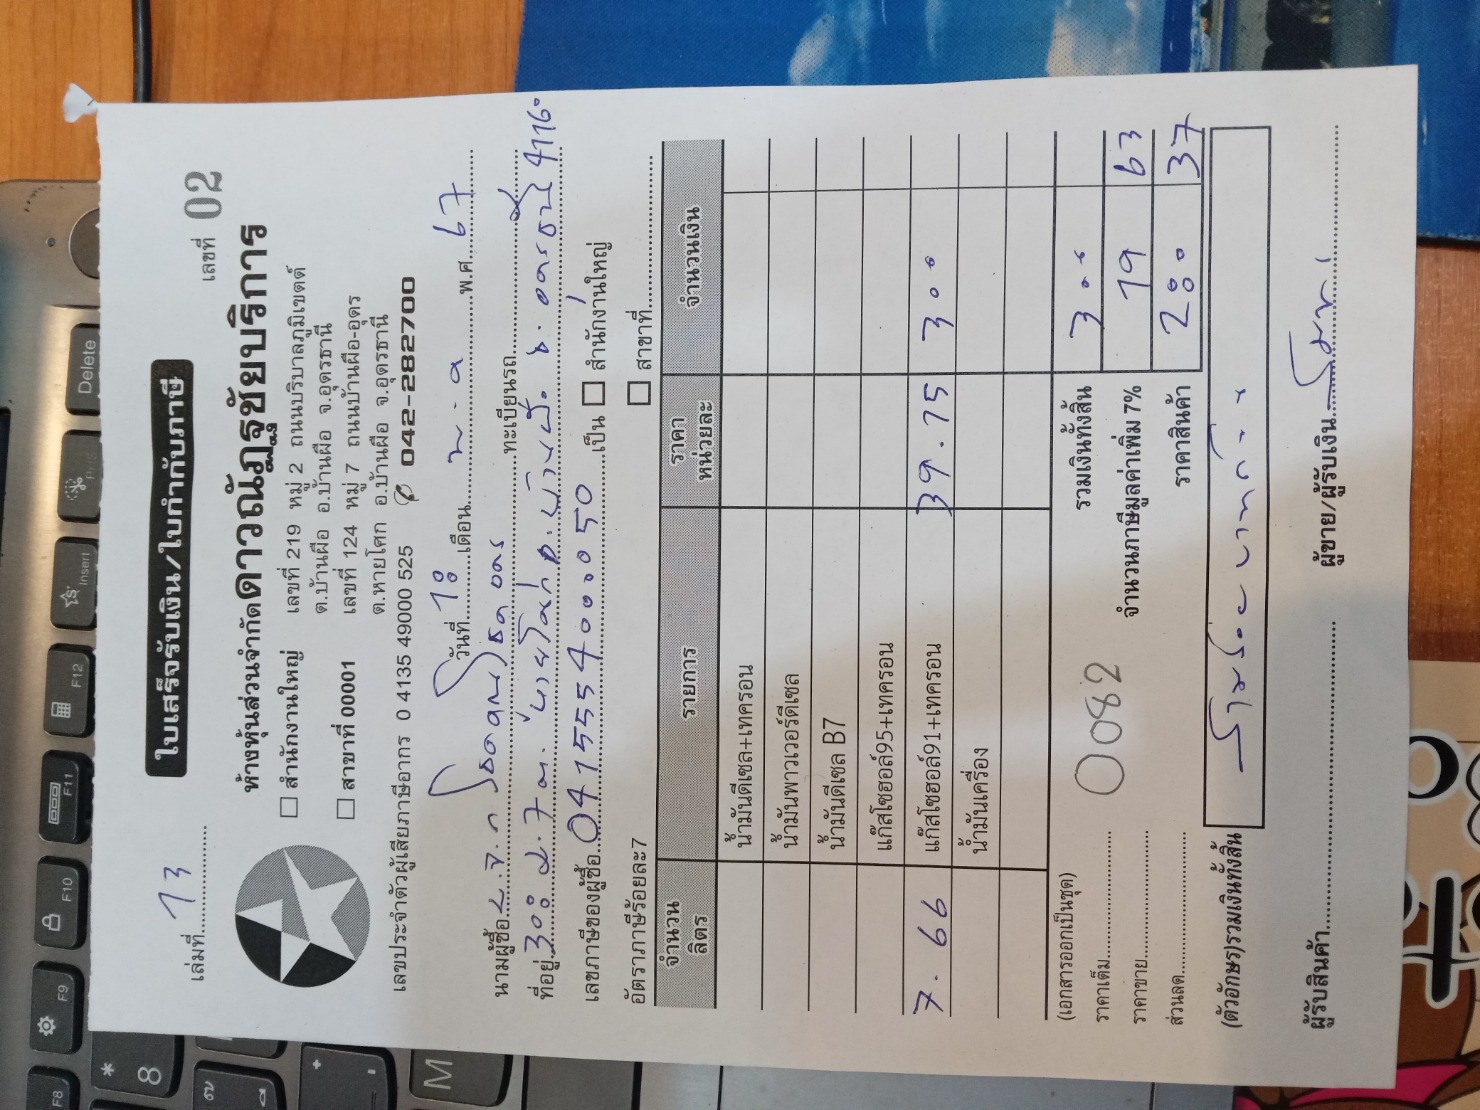 ใบเสร็จรับเงิน/ใบกำกับภาษี
เล่มที่ 13 เลขที่ 02
ห้างหุ้นส่วนจำกัดดาวณัฏฐชัยบริการ
☐ สำนักงานใหญ่ เลขที่ 219 หมู่ 2 ถนนบริบาลภูมิเขตต์
ต.บ้านผือ อ.บ้านผือ จ.อุดรธานี
☐ สาขาที่ 00001 เลขที่ 124 หมู่ 7 ถนนบ้านผือ-อุดร
ต.หายโศก อ.บ้านผือ จ.อุดรธานี
เลขประจำตัวผู้เสียภาษีอากร 0 4135 49000 525 042-282700
วันที่ 18 เดือน พ.ค พ.ศ. 67
นามผู้ซื้อ ทะเบียนรถ
ที่อยู่ 308 ม.7 ต. บ้านผือ อ.บ้านผือ จ.อุดรธานี 41160
เลขภาษีของผู้ซื้อ 0415554000050 เป็น ☐ สำนักงานใหญ่
อัตราภาษีร้อยละ7 ☐ สาขาที่
จำนวนลิตร รายการ ราคาหน่วยละ จำนวนเงิน
น้ำมันดีเซล+เทครอน
น้ำมันพาวเวอร์ดีเซล
น้ำมันดีเซล B7
แก๊สโซฮอล์95+เทครอน
7.66 แก๊สโซฮอล์91+เทครอน 39.15 300
น้ำมันเครื่อง
(เอกสารออกเป็นชุด)
ราคาเต็ม 0082 รวมเงินทั้งสิ้น 300
ราคาขาย จำนวนภาษีมูลค่าเพิ่ม 7% 19 63
ส่วนลด ราคาสินค้า 280 37
(ตัวอักษร)รวมเงินทั้งสิ้น สามร้อยบาทถ้วน
ผู้รับสินค้า ผู้ขาย/ผู้รับเงิน
F8
F9
F10
F11
F12
Insert
Delete
8
M